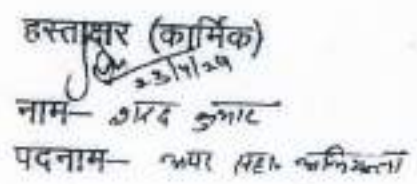 हस्ताक्षर (कार्मिक)
23/4/24
नाम– शरद कुमार
पदनाम– अपर सहा० अभियन्ता